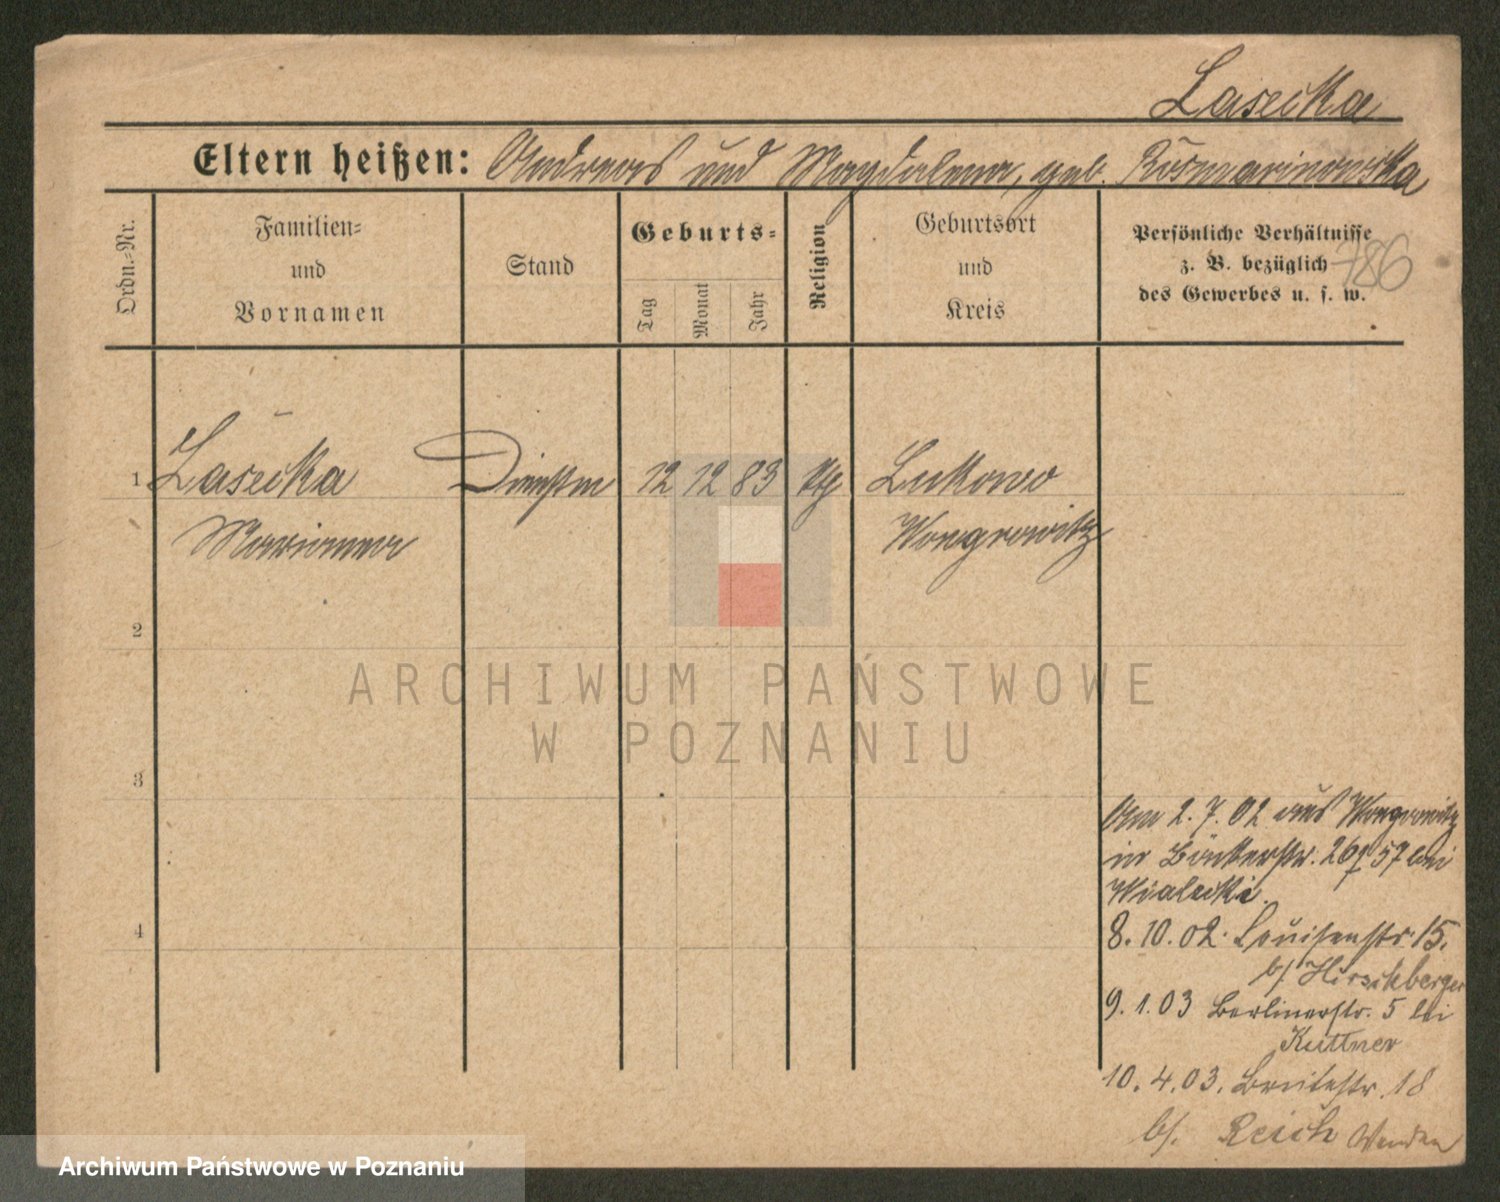 Lasecka
Eltern heißen: Andreas und Magdalena, geb. Rosmarinowska
Ordn.-Nr.
Familien-
und
Vornamen
Stand
Geburts-
Tag
Monat
Jahr
Religion
Geburtsort
und
Kreis
Persönliche Verhältnisse
z. B. bezüglich
des Gewerbes u. s. w.
786
1 Lasecka 12 12 83 ktg Lukowo
Marianna Wongrowitz
2
3
4
Am 2.7.02 aus Wongrowitz
in Bäckerstr. 26/57 bei
Wialecki.
8.10.02. Louisenstr. 15.
b/ Hirschberger
9.1.03 Berlinerstr. 5 bei
Kuttner
10.4.03. Breitestr. 18
b/. Reich Wenden
ARCHIWUM PAŃSTWOWE
W POZNANIU
Archiwum Państwowe w Poznaniu